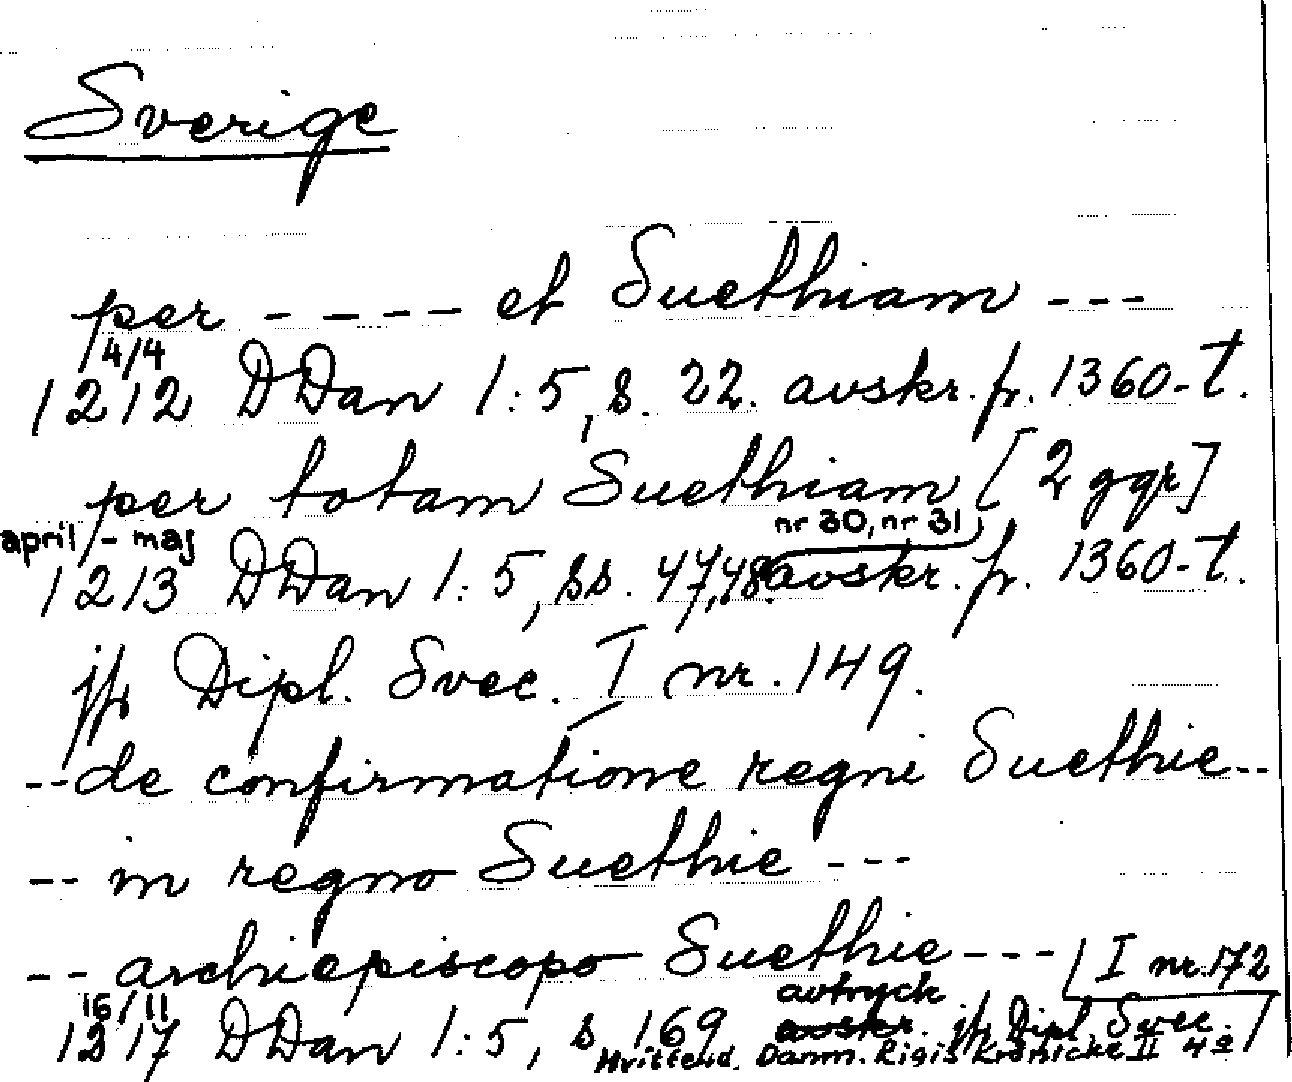 Sverige
per - - - - et Suethiam - - -
4/4
1212 DDan 1:5, s. 22. avskr. fr. 1360-t.
per totam Suethiam [2 ggr]
april - maj nr 30, nr 31
1213 DDan 1:5, ss. 47, 48. avskr. fr. 1360-t.
jfr Dipl. Svec. I nr. 149.
-- de confirmatione regni Suethie --
-- in regno Suethie ---
-- archiepiscopo Suethie --- I nr. 172
16/11 avtryck
1217 DDan 1:5, s. 169 avskr. jfr Dipl. Svec.
Hvitfeld, Danm. Rigis Krønicke II 4º